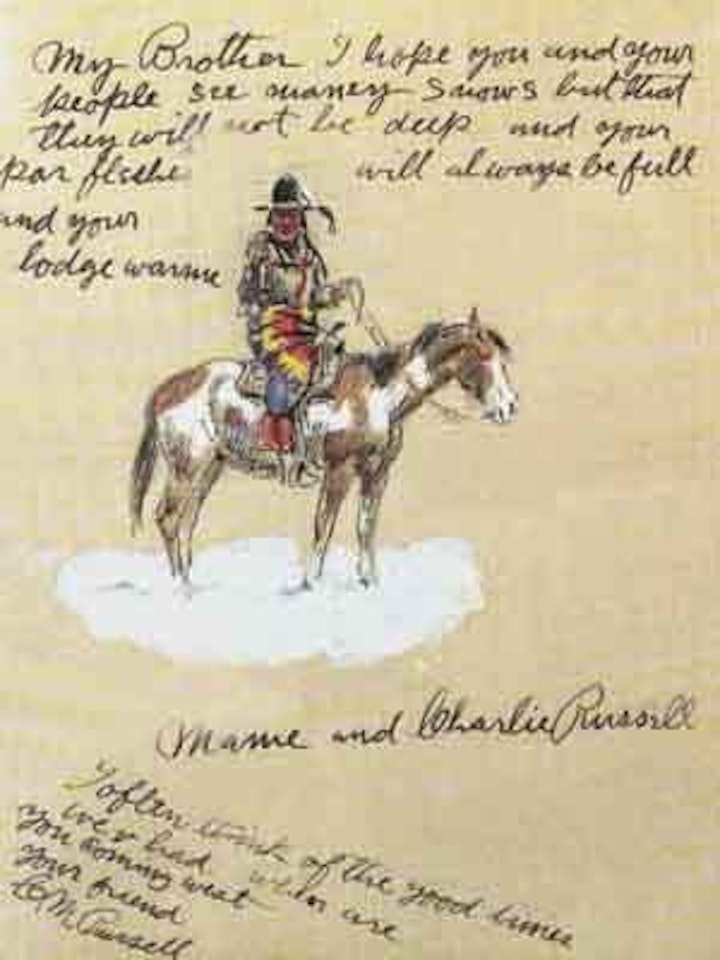 My Brother I hope you and your
people see maney snows but that
they will not be deep and your
par fleshe will always be full
and your
lodge warme
Mame and Charlie Russell
I often think of the good times
we v had when are
you coming west
your friend
CM Russell